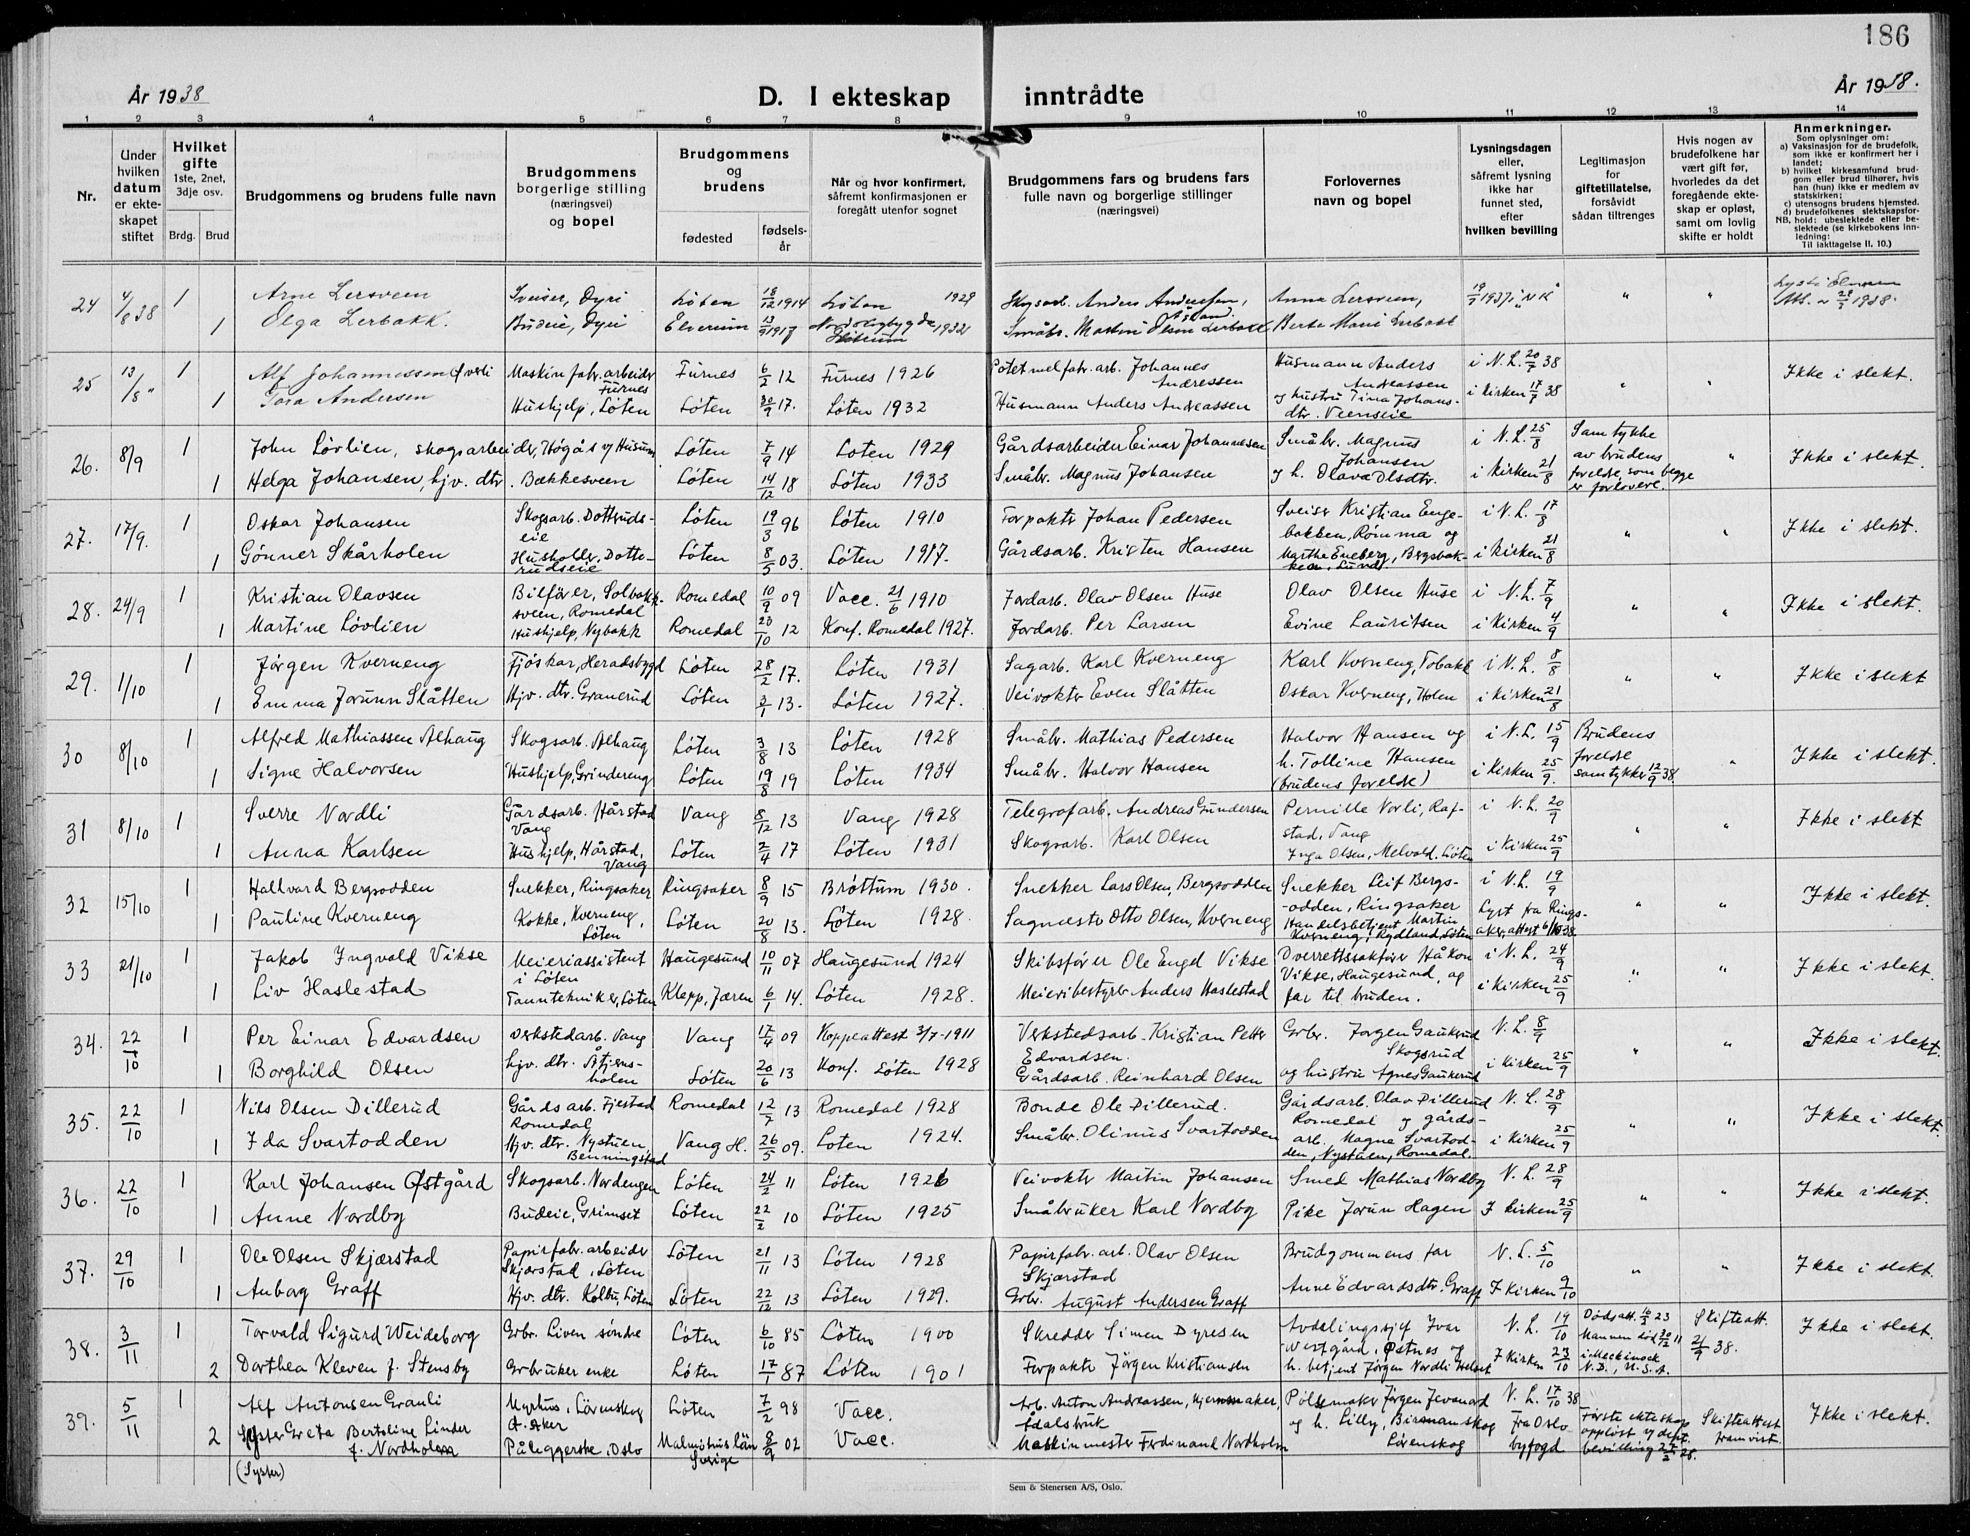 186
År 1938
D. I ekteskap inntrådte
År 1938.
1 2 3 4 5 6 7 8 9 10 11 12 13 14
Nr.
Under hvilken datum er ekteskapet stiftet
Hvilket gifte 1ste, 2net, 3dje osv.
Brdg. Brud
Brudgommens og brudens fulle navn
Brudgommens borgerlige stilling (næringsvei) og bopel
Brudgommens og brudens
fødested
fødselsår
Når og hvor konfirmert, såfremt konfirmasjonen er foregått utenfor sognet
Brudgommens fars og brudens fars fulle navn og borgerlige stillinger (næringsvei)
Forlovernes navn og bopel
Lysningsdagen eller, såfremt lysning ikke har funnet sted, efter hvilken bevilling
Legitimasjon for giftetillatelse, forsåvidt sådan tiltrenges
Hvis nogen av brudefolkene har vært gift før, hvorledes da det foregående ekteskap er opløst, samt om lovlig skifte er holdt
Anmerkninger.
Som oplysninger om:
a) Vaksinasjon for de brudefolk, som ikke er konfirmert her i landet;
b) hvilket kirkesamfund brudgom eller brud tilhører, hvis han (hun) ikke er medlem av statskirken;
c) utensogns brudens hjemsted.
d) brudefolkenes slektskapsforhold: ubeslektede eller beslektede (se kirkebokens innledning:
NB.
Til iakttagelse II. 10.)
24 4/8 38 1 Arne Lersveen Sveiser, Dyri Løten 18/12 1914 Løten 1929 Skogsarb. Anders Andersen, Anna Lersveen, 19/7 1937 i "N K" " "
1 Olga Lerbakk. Budeie, Dyri Elverum 13/9 1917 1932 Småbr. Martin Olsen Lerbakk Berte Marie Lerbakk
25 13/8 " 1 Alf Johannessen Øverli Maskinfabr. arbeider Furnes Furnes 6/2 12 Furnes 1926 Potetmelfabr. arb. Johannes Andressen Husmann Anders Andreassen i N. L. 20/7 38 " " Ikke i slekt.
1 Tora Andersen Hushjelp, Løten Løten 30/9 17. Løten 1932 Husmann Anders Andreassen og hustru Tina Johansdtr. Veenseie i Kirken 17/7 38
26. 8/9 1 John Løvlien, skogsarbeider, Høgås v/ Husum Løten 7/9 14 Løten 1929 Gårdsarbeider Einar Johannesen Småbr. Magnus Johansen i N. L. 25/8 Samtykke av brudens foreldre, som begge er forlovere. " Ikke i slekt.
1 Helga Johansen, hjv. dtr. Bækkesveen Løten 14/12 18 Løten 1933 Småbr. Magnus Johansen og h. Olava Olsdtr. i Kirken 21/8
27. 17/9. 1 Oskar Johansen Skogsarb. Dotterudseie Løten 19/3 96 Løten 1910 Forpakter Johan Pedersen Sveiser Kristian Engebakken, Rømma og i N. L. 17/8 " " Ikke i slekt.
1 Gønner Skårholen Husholder. Dotterudseie Løten 8/5 03. Løten 1917. Gårdsarb. Kristen Hansen Marthe Eneberg, Bergsbakken, Lund i Kirken 21/8
28. 24/9 1 Kristian Olavsen Bilfører, Solbakksveen, Romedal Romedal 10/9 09 Vacc. 21/6 1910 Jordarb. Olav Olsen Huse Olav Olsen Huse i N. L. 7/9 " " Ikke i slekt.
1 Martine Løvlien Hushjelp, Nybakk Romedal 23/10 12 Konf. Romedal 1927. Jordarb. Per Larsen Evine Lauritsen i Kirken 4/9
29. 1/10 1 Jørgen Kverneng Fjøskar, Heradsbygd Løten 28/2 17. Løten 1931 Sagarb. Karl Kverneng Karl Kverneng, Tobakk i N. L. 8/8 " " Ikke i slekt
1 Emma Jorunn Slåtten Hjv. dtr. Granerud Løten 3/1 13. Løten 1927. Veivokter Even Slåtten Oskar Kverneng, Holen i Kirken 21/8
30 8/10 1 Alfred Mathiassen Alhaug Skogsarb. Alhaug Løten 3/8 13 Løten 1928 Småbr. Mathias Pedersen Halvor Hansen og i N. L. 15/9 Brudens foreldre samtykker 12/9 38. " Ikke i slekt.
1 Signe Halvorsen Hushjelp, Grindereng Løten 19/8 19 Løten 1934 Småbr. Halvor Hansen h. Tolline Hansen (brudens foreldre) i Kirken 25/9.
31 8/10 1 Sverre Nordli Gårdsarb. Hårstad Vang Vang 8/12 13 Vang 1928 Telegrafarb. Andreas Gundersen Pernille Norli, Rafstad, Vang i N. L. 20/9 " " Ikke i slekt
1 Anna Karlsen Hushjelp, Hårstad, Vang Løten 2/4 17 Løten 1931 Skogsarb. Karl Olsen Inga Olsen, Melvold. Løten i Kirken 25/9
32 15/10 1 Hallvard Bergsodden Snekker, Ringsaker Ringsaker 8/9 15 Brøttum 1930. Snekker Lars Olsen, Bergsodden Snekker Leif Bergsodden, Ringsaker i N. L. 19/9 " " Ikke i slekt.
1 Pauline Kverneng Kokke, Kverneng, Løten Løten 20/8 13. Løten 1928. Sagmester Otto Olsen, Kverneng Handelsbetjent Martin Kverneng, Rydland, Løten Lyst fra Ringsaker, attest 6/10 38
33 21/10 1 Jakob Ingvald Vikse Meieriassistent i Løten Haugesund 10/11 07 Haugesund 1924 Skibsfører Ole Engel Vikse Overrettssakfører Håkon Vikse, Haugesund, og i N. L. 24/9 " " Ikke i slekt.
1 Liv Haslestad Tanntekniker, Løten Klepp, Jæren 6/1 14. Løten 1928. Meieribestyrer Anders Haslestad far til bruden. i Kirken 25/9
34. 22/10 1 Per Einar Edvardsen Verkstedarb. Vang Vang 17/4 09 Koppeattest 3/7-1911 Verkstedsarb. Kristian Petter Edvardsen. Grbr. Jørgen Gaukerud Skogsrud N. L. 8/9 " " Ikke i slekt.
1 Borghild Olsen hjv. dtr. Løten 20/6 13 Konf. Løten 1928 Gårdsarb. Reinhard Olsen og hustru Agnes Gaukerud i Kirken 25/9
35. 22/10 1 Nils Olsen Dillerud Gårdsarb. Fjestad Romedal Romedal 12/7 13 Romedal 1928 Bonde Ole Dillerud. Gårdsarb. Olav Dillerud Romedal og gårds- N. L. 28/9 " " Ikke i slekt.
1 Ida Svartodden Hjv. dtr. Nystuen, Benningstad Vang H. 26/5 09. Løten 1924. Småbr. Olinus Svartodden arb. Magne Svartodden, Nystuen, Romedal. i Kirken 25/9
36. 22/10 1 Karl Johansen Østgård Skogsarb. Nordengen Løten 24/2 11 Løten 1926 Veivokter Martin Johansen Smed Mathias Nordby N. L. 28/9 " " Ikke i slekt.
1 Anne Nordby Budeie, Grimset Løten 22/2 10 Løten 1925 Småbruker Karl Nordby Pike Jorun Hagen I Kirken 25/9
37. 29/10 1 Ole Olsen Skjærstad Papirfabr. arbeider Skjærstad, Løten Løten 21/11 13 Løten 1928 Papirfabr. arb. Olav Olsen Skjærstad Brudgommens far N. L. 5/10 " " Ikke i slekt.
1 Aubag Graff Hjv. dtr. Kolbu, Løten Løten 22/12 13 Løten 1929. Grbr. August Andersen Graff Anne Edvardsdtr. Graff I Kirken 9/10
38. 3/11 1 Torvald Sigurd Weideborg Grbr. Liven søndre Løten 6/10 85 Løten 1900 Skredder Simen Dyresen Avdelingssjef Ivar Westgård, Østnes og N. L. 19/10 Dødsatt. 23 Mannen død 30/12 11 i N. D., U. S. A. Skifteatt. 21/9 38. Ikke i slekt.
2 Dorthea Kleven f. Stensby Grbruker enke Løten 17/1 87 Løten 1901 Forpakter Jørgen Kristiansen h. betjent Jørgen Nordli I Kirken 23/10
39. 5/11 1 Alf Antonsen Granli Myrhus, Lørenskog Ø. Aker Løten 7/2 98 Vacc. Arb. Anton Andreassen, Ådalsbruk Pølsemaker Jørgen Jevanord N. L. 17/10 38 Første ekteskap oppløst v/ dept. bevilling 28. Skifteattest framvist. Ikke i slekt.
2 Greta Bertoline Linder f. Nordholm Påleggerske, Oslo Malmøhus län Sverige 02 Vacc. Maskinmester Ferdinand Nordholm og h. Lilly, Lørenskog Fra Oslo byfogd
(Syster)
Sem & Stenersen A/S, Oslo.